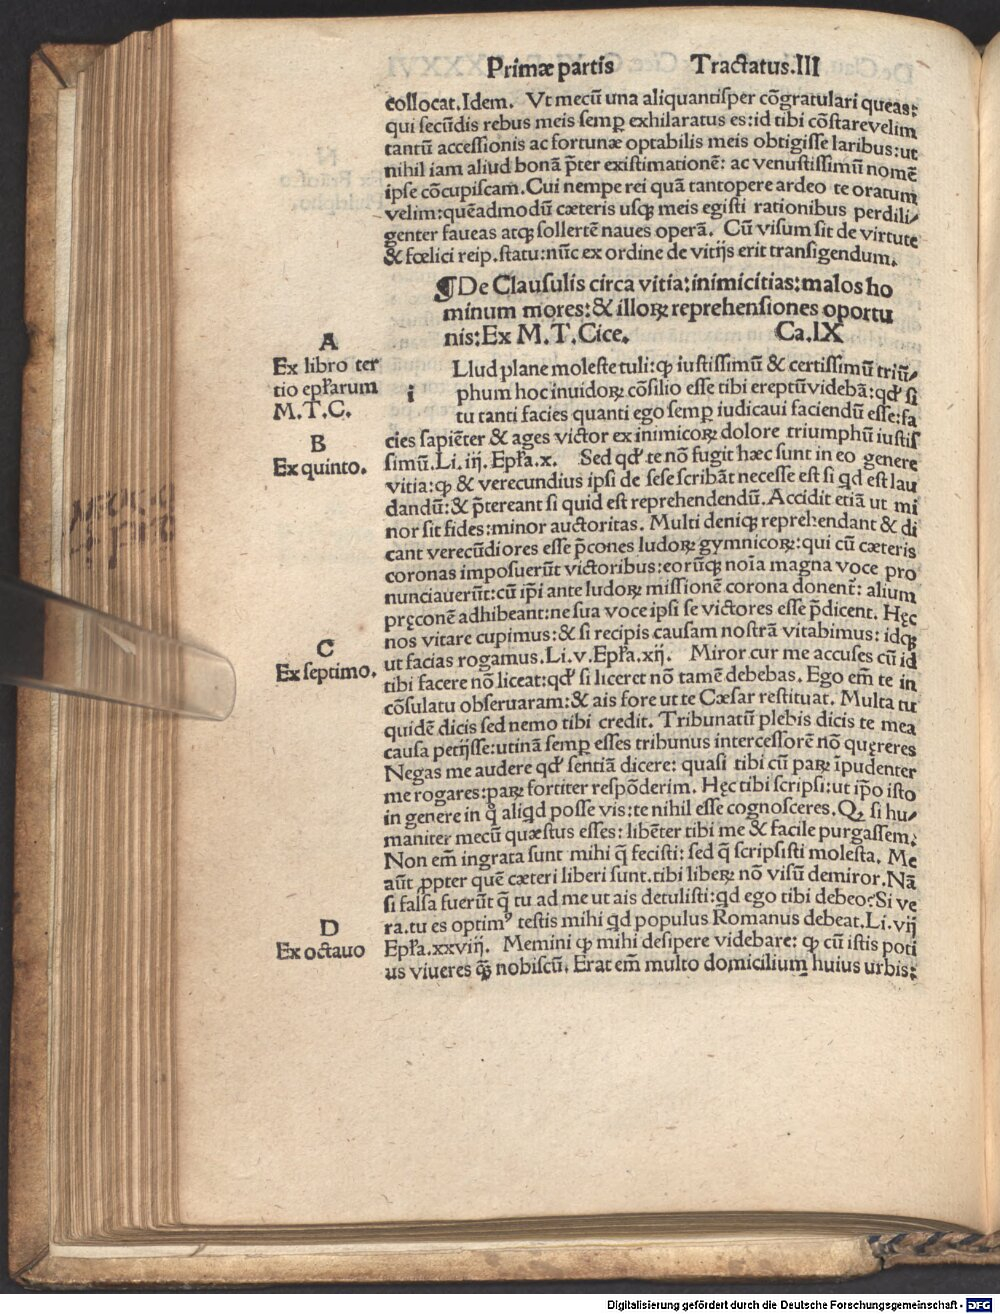 Primæ partis Tractatus.III
collocat.Idem. Vt mecū una aliquantiſper cōgratulari queas:
qui ſecūdis rebus meis ſemꝑ exhilaratus es:id tibi cōſtarevelim
tantū acceſſionis ac fortunæ optabilis meis obtigiſſe laribus:ut
nihil iam aliud bonā p̄ter exiſtimationē: ac venuſtiſſimū nomē
ipſe cōcupiſcam.Cui nempe rei quā tantopere ardeo te oratum
velim:quēadmodū cæteris uſq; meis egiſti rationibus perdili/
genter faueas atq; ſollertē naues operā. Cū viſum ſit de virtute
& fœlici reip.ſtatu:nūc ex ordine de vitijs erit tranſigendum.
¶De Clauſulis circa vitia:inimicitias:malos ho
minum mores:& illoꝝ reprehenſiones oportu
nis:Ex M.T.Cice. Ca.IX
A
Ex libro ter
tio epl̄arum
M.T.C.
i
Llud plane moleſte tuli:ꝙ iuſtiſſimū & certiſſimū triū/
phum hoc inuidoꝝ cōſilio eſſe tibi ereptūvidebā:qđ ſi
tu tanti facies quanti ego ſemꝑ iudicaui faciendū eſſe:fa
cies ſapiēter & ages victor ex inimicoꝝ dolore triumphū iuſtiſ
B
Ex quinto.
ſimū.Li.iij.Epl̄a.x. Sed qđ te nō fugit hæc ſunt in eo genere
vitia:ꝙ & verecundius ipſi de ſeſe ſcribāt neceſſe eſt ſi qd eſt lau
dandū:& p̄tereant ſi quid eſt reprehendendū.Accidit etiā ut mi
nor ſit fides:minor auctoritas. Multi deniq; reprehendant & di
cant verecūdiores eſſe p̄cones ludoꝝ gymnicoꝝ:qui cū cæteris
coronas impoſuerūt victoribus:eorūq; noīa magna voce pro
nunciauerūt:cū ip̄i ante ludoꝝ miſſionē corona donent̄: alium
pręconē adhibeant:ne ſua voce ipſi ſe victores eſſe p̄dicent. Hęc
nos vitare cupimus:& ſi recipis cauſam noſtrā vitabimus: idq;
C
Ex ſeptimo.
ut facias rogamus.Li.v.Epl̄a.xij. Miror cur me accuſes cū id
tibi facere nō liceat:qđ ſi liceret nō tamē debebas. Ego em̄ te in
cōſulatu obſeruaram:& ais fore ut te Cæſar reſtituat. Multa tu
quidē dicis ſed nemo tibi credit. Tribunatū plebis dicis te mea
cauſa petijſſe:utinā ſemꝑ eſſes tribunus interceſſorē nō quęreres
Negas me audere qđ ſentiā dicere: quaſi tibi cū paꝝ īpudenter
me rogares:paꝝ fortiter reſpōderim. Hęc tibi ſcripſi:ut ip̄o iſto
in genere in q̄ aliqd poſſe vis:te nihil eſſe cognoſceres.Qꝫ ſi hu/
maniter mecū quæſtus eſſes: libēter tibi me & facile purgaſſem:
Non em̄ ingrata ſunt mihi q̄ feciſti: ſed q̄ ſcripſiſti moleſta. Me
aūt ꝓpter quē cæteri liberi ſunt.tibi libeꝝ nō viſū demiror.Nā
ſi falſa fuerūt q̄ tu ad me ut ais detuliſti:qd ego tibi debeo?Si ve
D
Ex octauo
ra.tu es optimꝰ teſtis mihi qd populus Romanus debeat.Li.vij
Epl̄a.xxviij. Memini ꝙ mihi deſipere videbare: ꝙ cū iſtis poti
us viueres q̄ꝫ nobiſcū. Erat em̄ multo domicilium huius urbis:
Digitalisierung gefördert durch die Deutsche Forschungsgemeinschaft - DFG